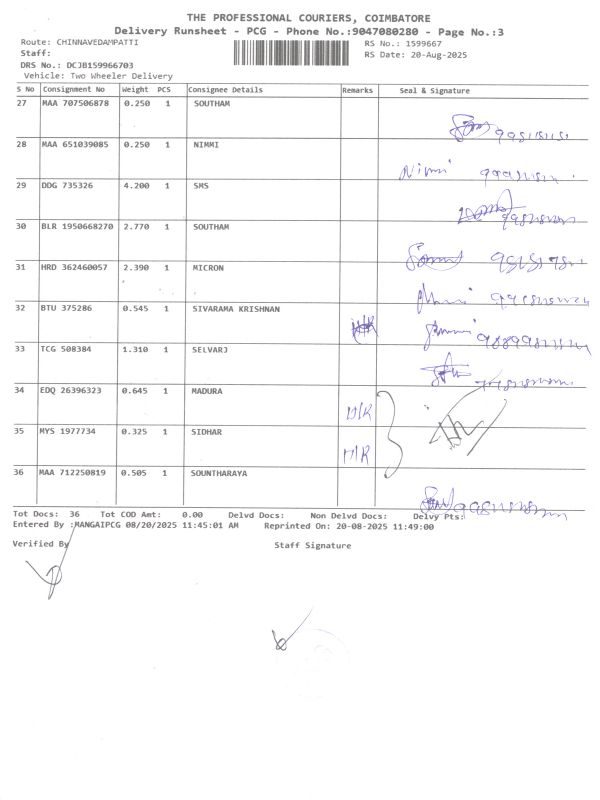 THE PROFESSIONAL COURIERS, COIMBATORE
Delivery Runsheet - PCG - Phone No.:9047080280 - Page No.:3
Route: CHINNAVEDAMPATTI RS No.: 1599667
Staff: RS Date: 20-Aug-2025
DRS No.: DCJB159966703
Vehicle: Two Wheeler Delivery
S No Consignment No Weight PCS Consignee Details Remarks Seal & Signature
27 MAA 707506878 0.250 1 SOUTHAM
28 MAA 651039085 0.250 1 NIMMI
Nimmi
29 DDG 735326 4.200 1 SMS
30 BLR 1950668270 2.770 1 SOUTHAM
31 HRD 362460057 2.390 1 MICRON
32 BTU 375286 0.545 1 SIVARAMA KRISHNAN
33 TCG 508384 1.310 1 SELVARJ
34 EDQ 26396323 0.645 1 MADURA
35 MYS 1977734 0.325 1 SIDHAR
36 MAA 712250819 0.505 1 SOUNTHARAYA
Tot Docs: 36 Tot COD Amt: 0.00 Delvd Docs: Non Delvd Docs: Delvy Pts:
Entered By :MANGAIPCG 08/20/2025 11:45:01 AM Reprinted On: 20-08-2025 11:49:00
Verified By Staff Signature